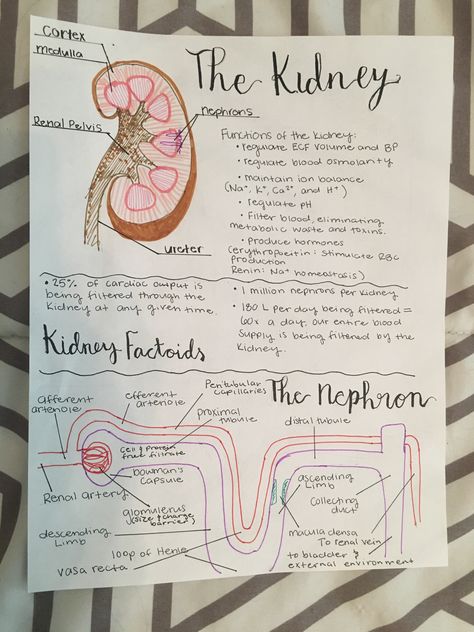 The Kidney
Cortex
medulla
nephrons
Renal Pelvis
ureter
Functions of the kidney:
• regulate ECF volume and BP
• regulate blood osmolarity
• maintain ion balance
(Na⁺, K⁺, Ca²⁺, and H⁺)
• regulate pH
• Filter blood, eliminating
metabolic waste and toxins.
• produce hormones
(erythropoetin: Stimulate RBC
production
Renin: Na⁺ homeostasis)
• 25% of cardiac output is
being filtered through the
kidney at any given time.
• 1 million nephrons per kidney
• 180 L per day being filtered =
60x a day, our entire blood
supply is being filtered by the
kidney.
Kidney Factoids
The Nephron
afferent
arteriole
efferent
arteriole
Peritubular
capillaries
proximal
tubule
distal tubule
cell & protein
fruit filtrate
bowman's
capsule
Renal artery
glomulerus
(size & charge
barrier)
ascending
limb
Collecting
duct
descending
Limb
loop of Henle
vasa recta
macula densa
To renal vein
to bladder &
external environment